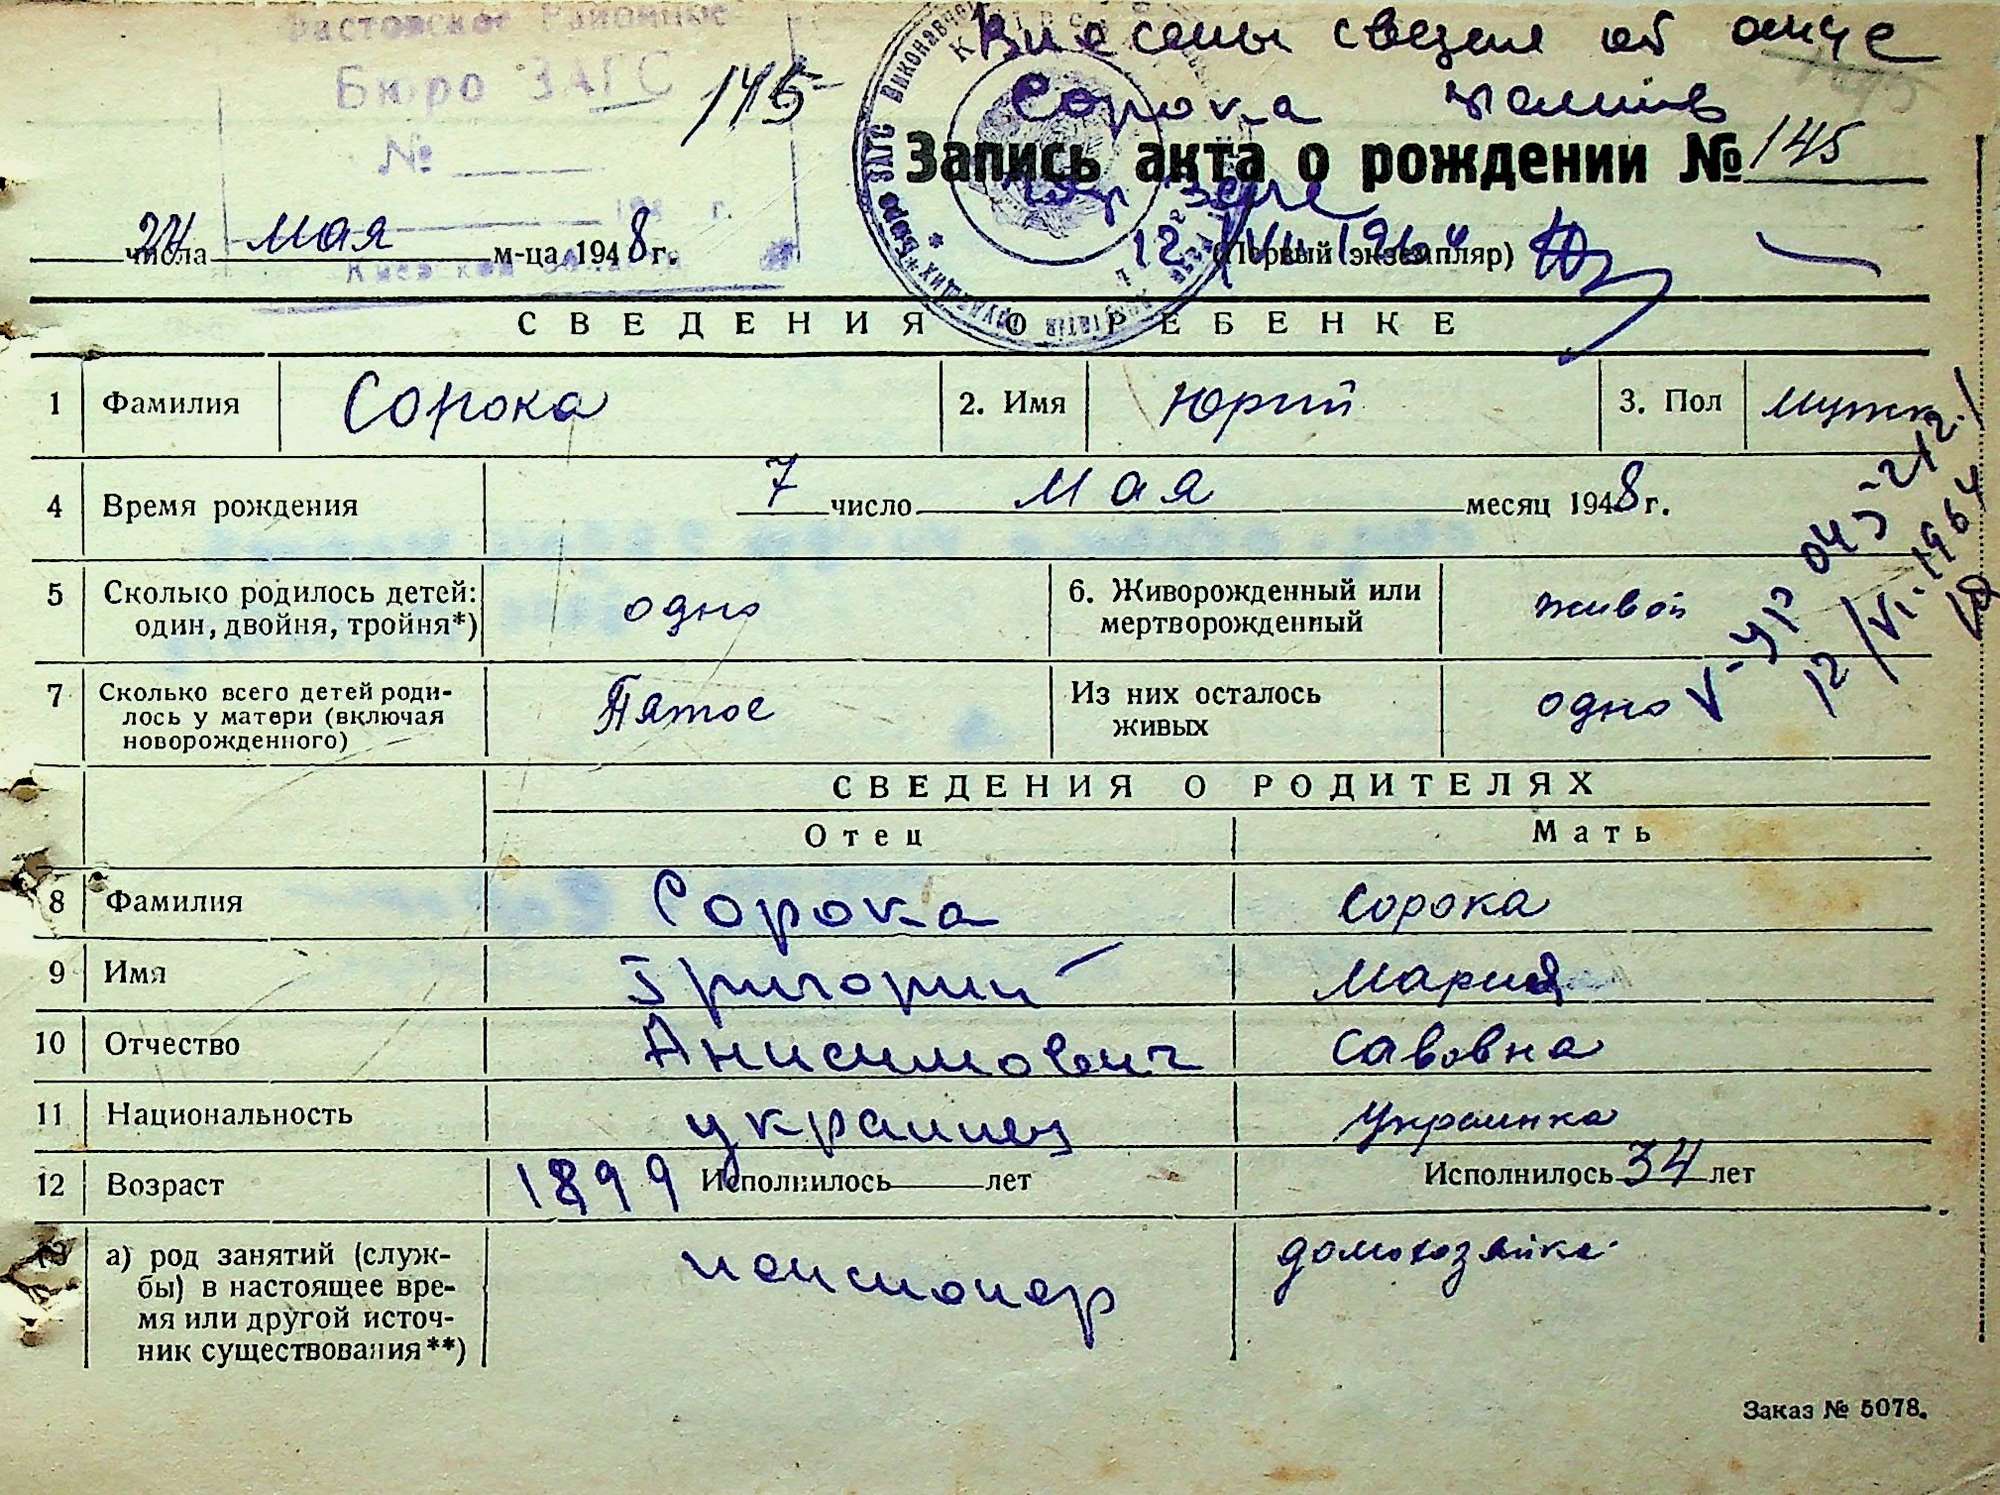 Фастовское Районное
Бюро ЗАГС
№
194 г.
Киевской области
145
Внесены сведен об отце
Сорока
Запись акта о рождении № 145
27 числа мая м-ца 1948 г.
12/VI 1964
(Первый экземпляр)
СВЕДЕНИЯ О РЕБЕНКЕ
1 Фамилия Сорока 2. Имя Юрий 3. Пол мужк
4 Время рождения 7 число мая месяц 1948 г.
5 Сколько родилось детей: один, двойня, тройня*) одно 6. Живорожденный или мертворожденный живой
7 Сколько всего детей родилось у матери (включая новорожденного) Пятое Из них осталось живых одно
V-УР 043
12/VI-1964
СВЕДЕНИЯ О РОДИТЕЛЯХ
Отец Мать
8 Фамилия Сорока Сорока
9 Имя Григорий Мария
10 Отчество Анисимович Савовна
11 Национальность украинец Украинка
12 Возраст 1899 Исполнилось лет Исполнилось 34 лет
13 а) род занятий (службы) в настоящее время или другой источник существования**) пенсионер домохозяйка
Заказ № 5078.